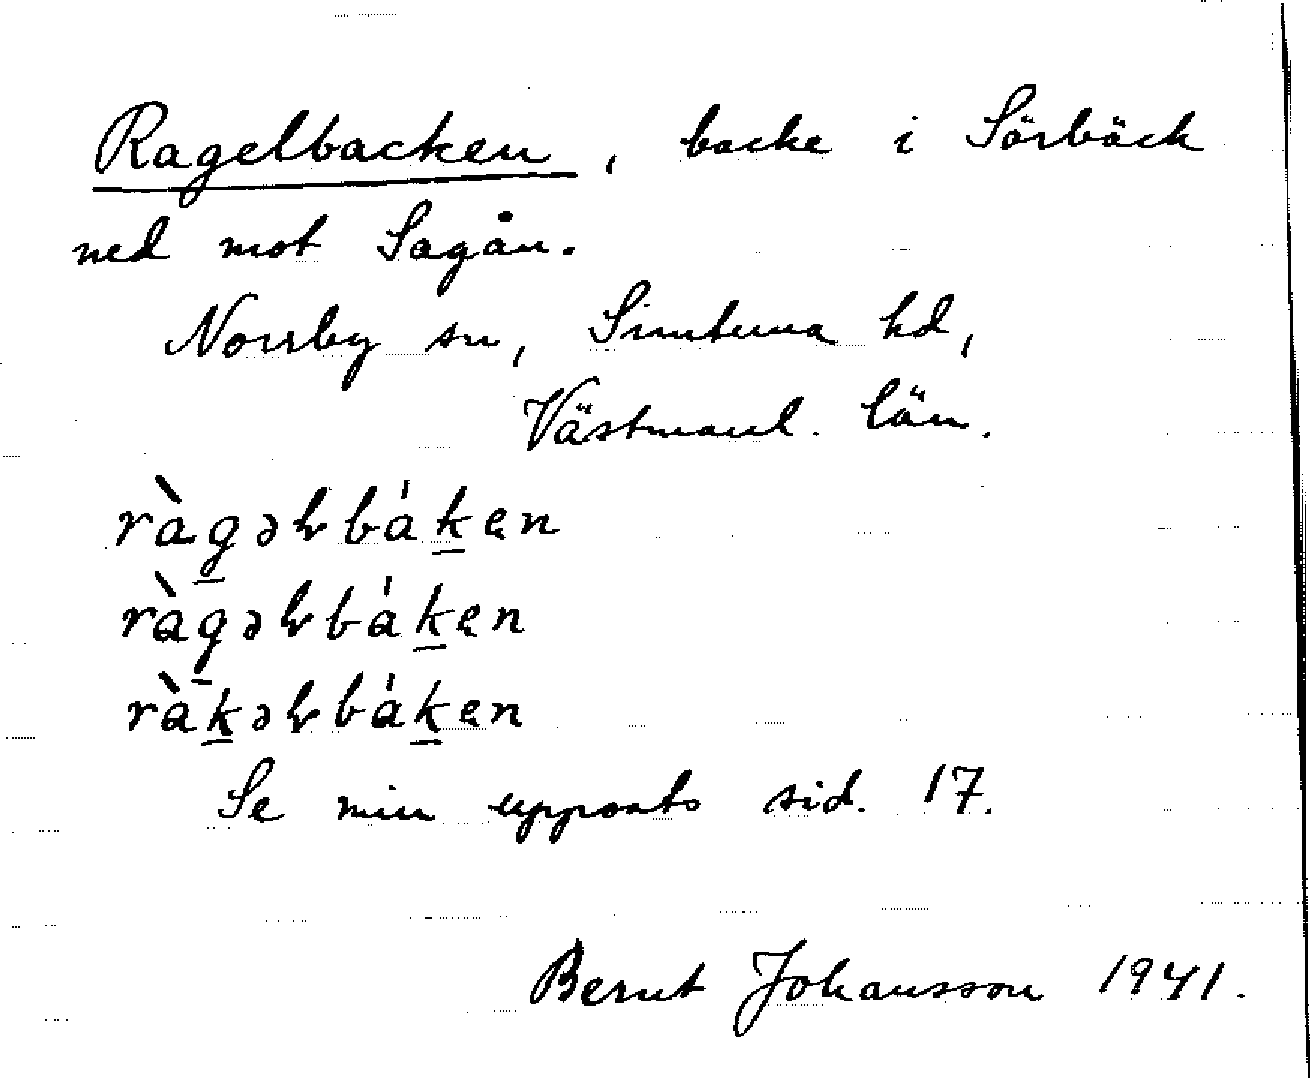 Ragelbacken, backe i Sörbäck
ned mot Sagån.
Norrby sn, Simtuna hd,
Västmanl. län.
ràgəɫbáken
ràgəɫbáken
ràkəɫbáken
Se min uppsats sid. 17.
Bernt Johansson 1941.